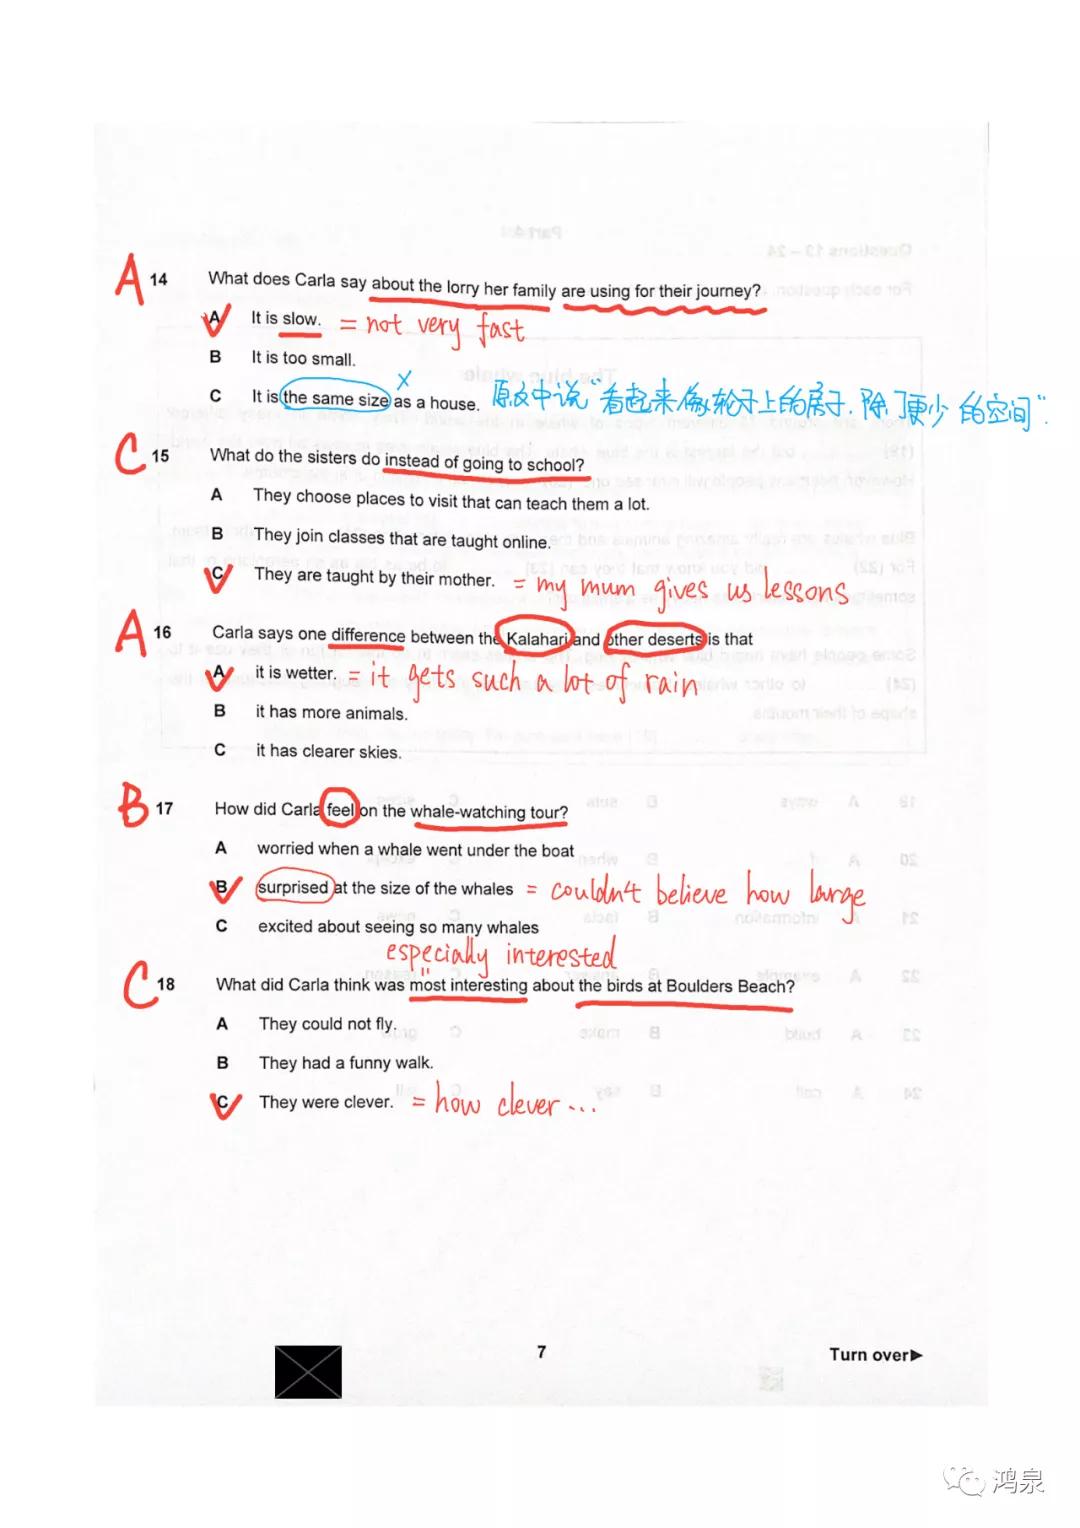 A 14 What does Carla say about the lorry her family are using for their journey?
A It is slow. = not very fast
B It is too small.
x
C It is the same size as a house. 原文中说"看起来像轮子上的房子,除了更少的空间".
C 15 What do the sisters do instead of going to school?
A They choose places to visit that can teach them a lot.
B They join classes that are taught online.
C They are taught by their mother. = my mum gives us lessons
A 16 Carla says one difference between the Kalahari and other deserts is that
A it is wetter. = it gets such a lot of rain
B it has more animals.
C it has clearer skies.
B 17 How did Carla feel on the whale-watching tour?
A worried when a whale went under the boat
B surprised at the size of the whales = couldn't believe how large
C excited about seeing so many whales
especially interested
C 18 What did Carla think was most interesting about the birds at Boulders Beach?
A They could not fly.
B They had a funny walk.
C They were clever. = how clever...
7
Turn over►
鸿泉